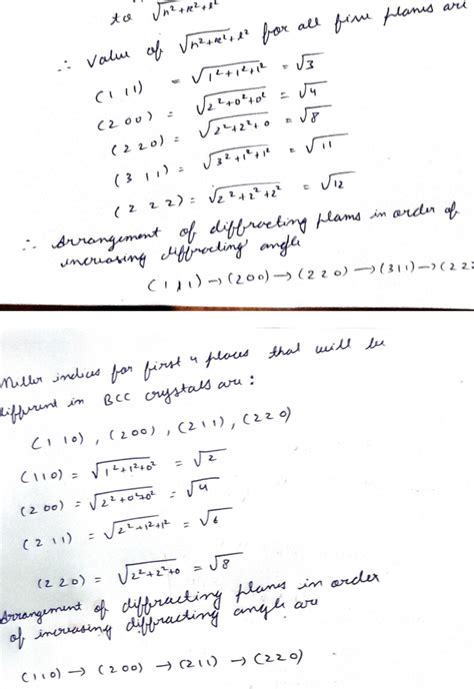 to √h²+k²+l²
∴ Value of √h²+k²+l² for all five planes are
(111) = √1²+1²+1² = √3
(200) = √2²+0²+0² = √4
(220) = √2²+2²+0 = √8
(311) = √3²+1²+1² = √11
(222) = √2²+2²+2² = √12
∴ Arrangement of diffracting plans in order of
increasing diffracting angle
(111) → (200) → (220) → (311) → (22
Miller indices for first 4 places that will be
different in BCC crystals are :
(110), (200), (211), (220)
(110) = √1²+1²+0² = √2
(200) = √2²+0²+0² = √4
(211) = √2²+1²+1² = √6
(220) = √2²+2²+0 = √8
Arrangement of diffracting planes in order
of increasing diffracting angle are
(110) → (200) → (211) → (220)